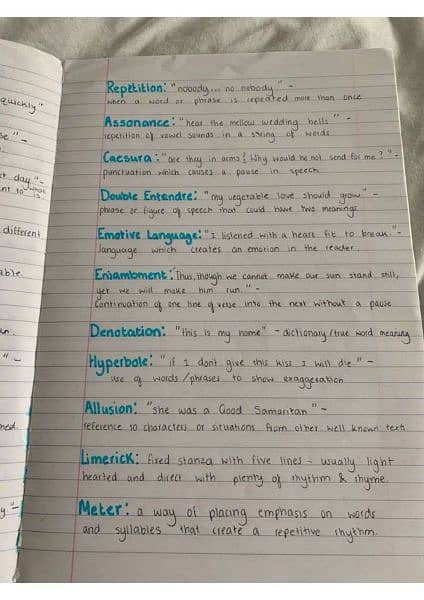 quickly"
se" -
t day." -
nt to what
is.
different
able.
on.
" -
ned.
y" -
Repetition: "nobody... no nobody" -
when a word or phrase is repeated more than once
Assonance: "hear the mellow wedding bells" -
repetition of vowel sounds in a string of words
Caesura: "are they in arms? Why would he not send for me?" -
punctuation which causes a pause in speech
Double Entendre: "my vegetable love should grow" -
phrase or figure of speech that could have two meanings
Emotive Language: "I listened with a heart fit to break." -
language which creates an emotion in the reader.
Enjambment: Thus, though we cannot make our sun stand still,
yet we will make him run." -
Continuation of one line of verse into the next without a pause
Denotation: "this is my home" - dictionary/true word meaning
Hyperbole: "if I dont give this kiss I will die." -
use of words/phrases to show exaggeration
Allusion: "she was a Good Samaritan" -
reference to characters or situations from other well known texts
Limerick: fixed stanza with five lines - usually light
hearted and direct with plenty of rhythm & rhyme.
Meter: a way of placing emphasis on words
and syllables that create a repetitive rhythm.